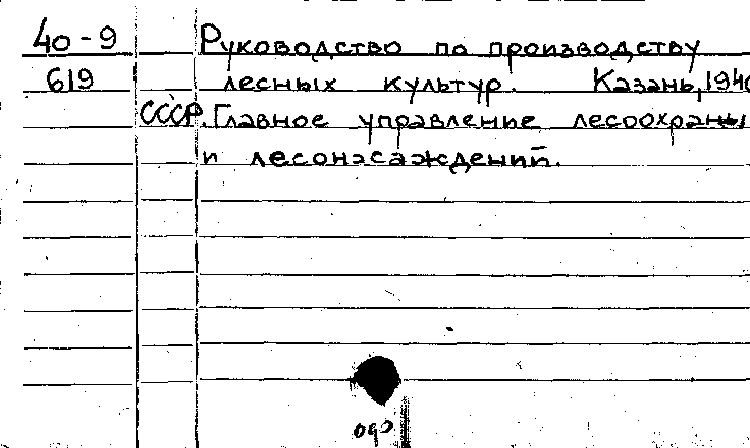 40-9 Руководство по производству
619 лесных культур. Казань, 1940
СССР. Главное управление лесоохраны
и лесонасаждений.